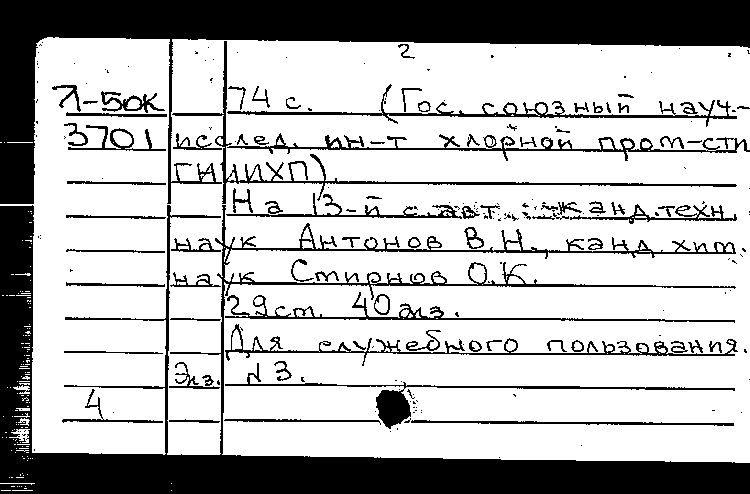 2
Л-50К 74 с. (Гос. союзный науч.-
3701 исслед. ин-т хлорной пром-сти
ГНИИХП).
На 13-й с. авт.: канд. техн.
наук Антонов В.Н., канд. хим.
наук Смирнов О.К.
29 см. 40 экз.
Для служебного пользования.
Экз. N 3.
4